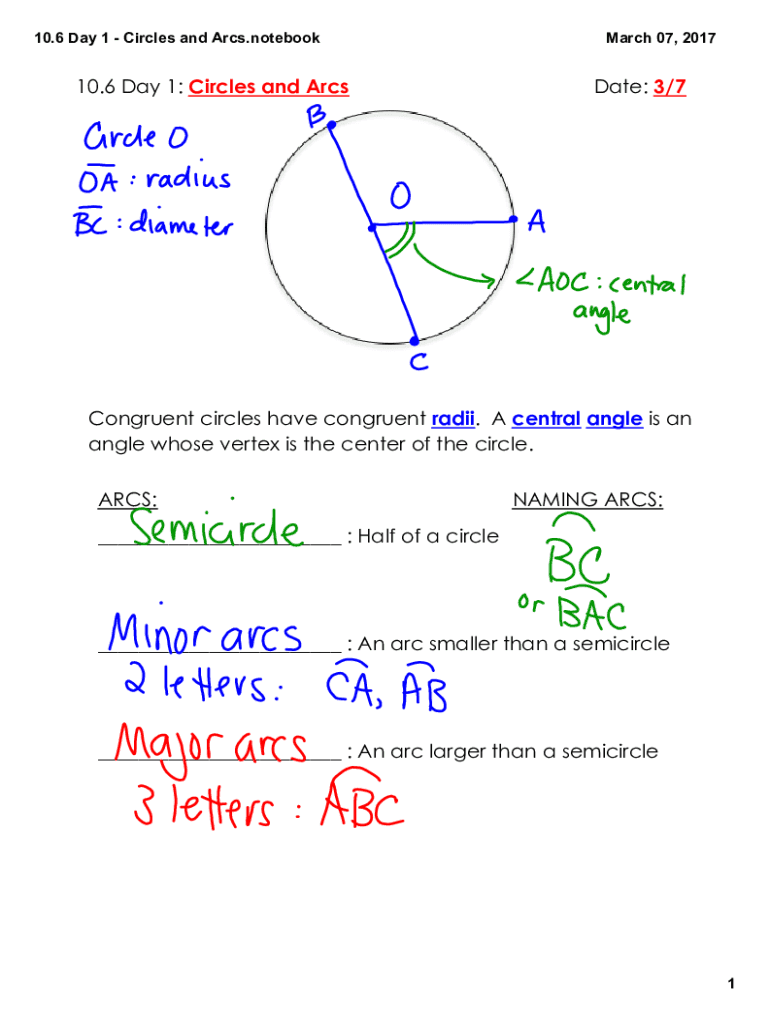 10.6 Day 1 - Circles and Arcs.notebook
March 07, 2017
10.6 Day 1: Circles and Arcs
Date: 3/7
B
Circle O
OA : radius
O
BC : diameter
A
∠AOC : central
angle
C
Congruent circles have congruent radii. A central angle is an
angle whose vertex is the center of the circle.
ARCS:
NAMING ARCS:
Semicircle : Half of a circle
BC
or BAC
Minor arcs : An arc smaller than a semicircle
2 letters: CA, AB
Major arcs : An arc larger than a semicircle
3 letters : ABC
1